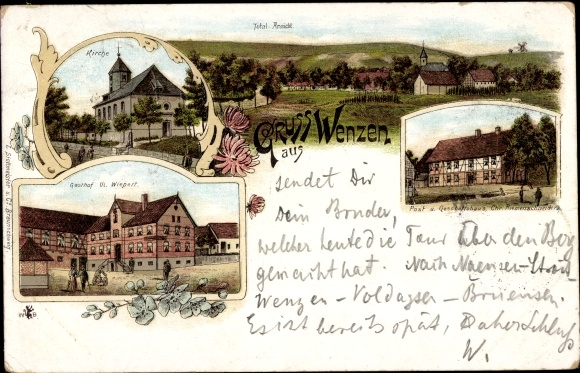 Total-Ansicht
Kirche
Gruss aus Wenzen.
Gasthof
Post u. Geschäftshaus, Chr.
sendet Dir
Dein Bruder,
welcher heute die Tour über den Berg
gemacht hat. Nach Naensen-
Wenzen - Voldagsen - Brunsen.
Es ist bereits spät, Daher Schluss
W.